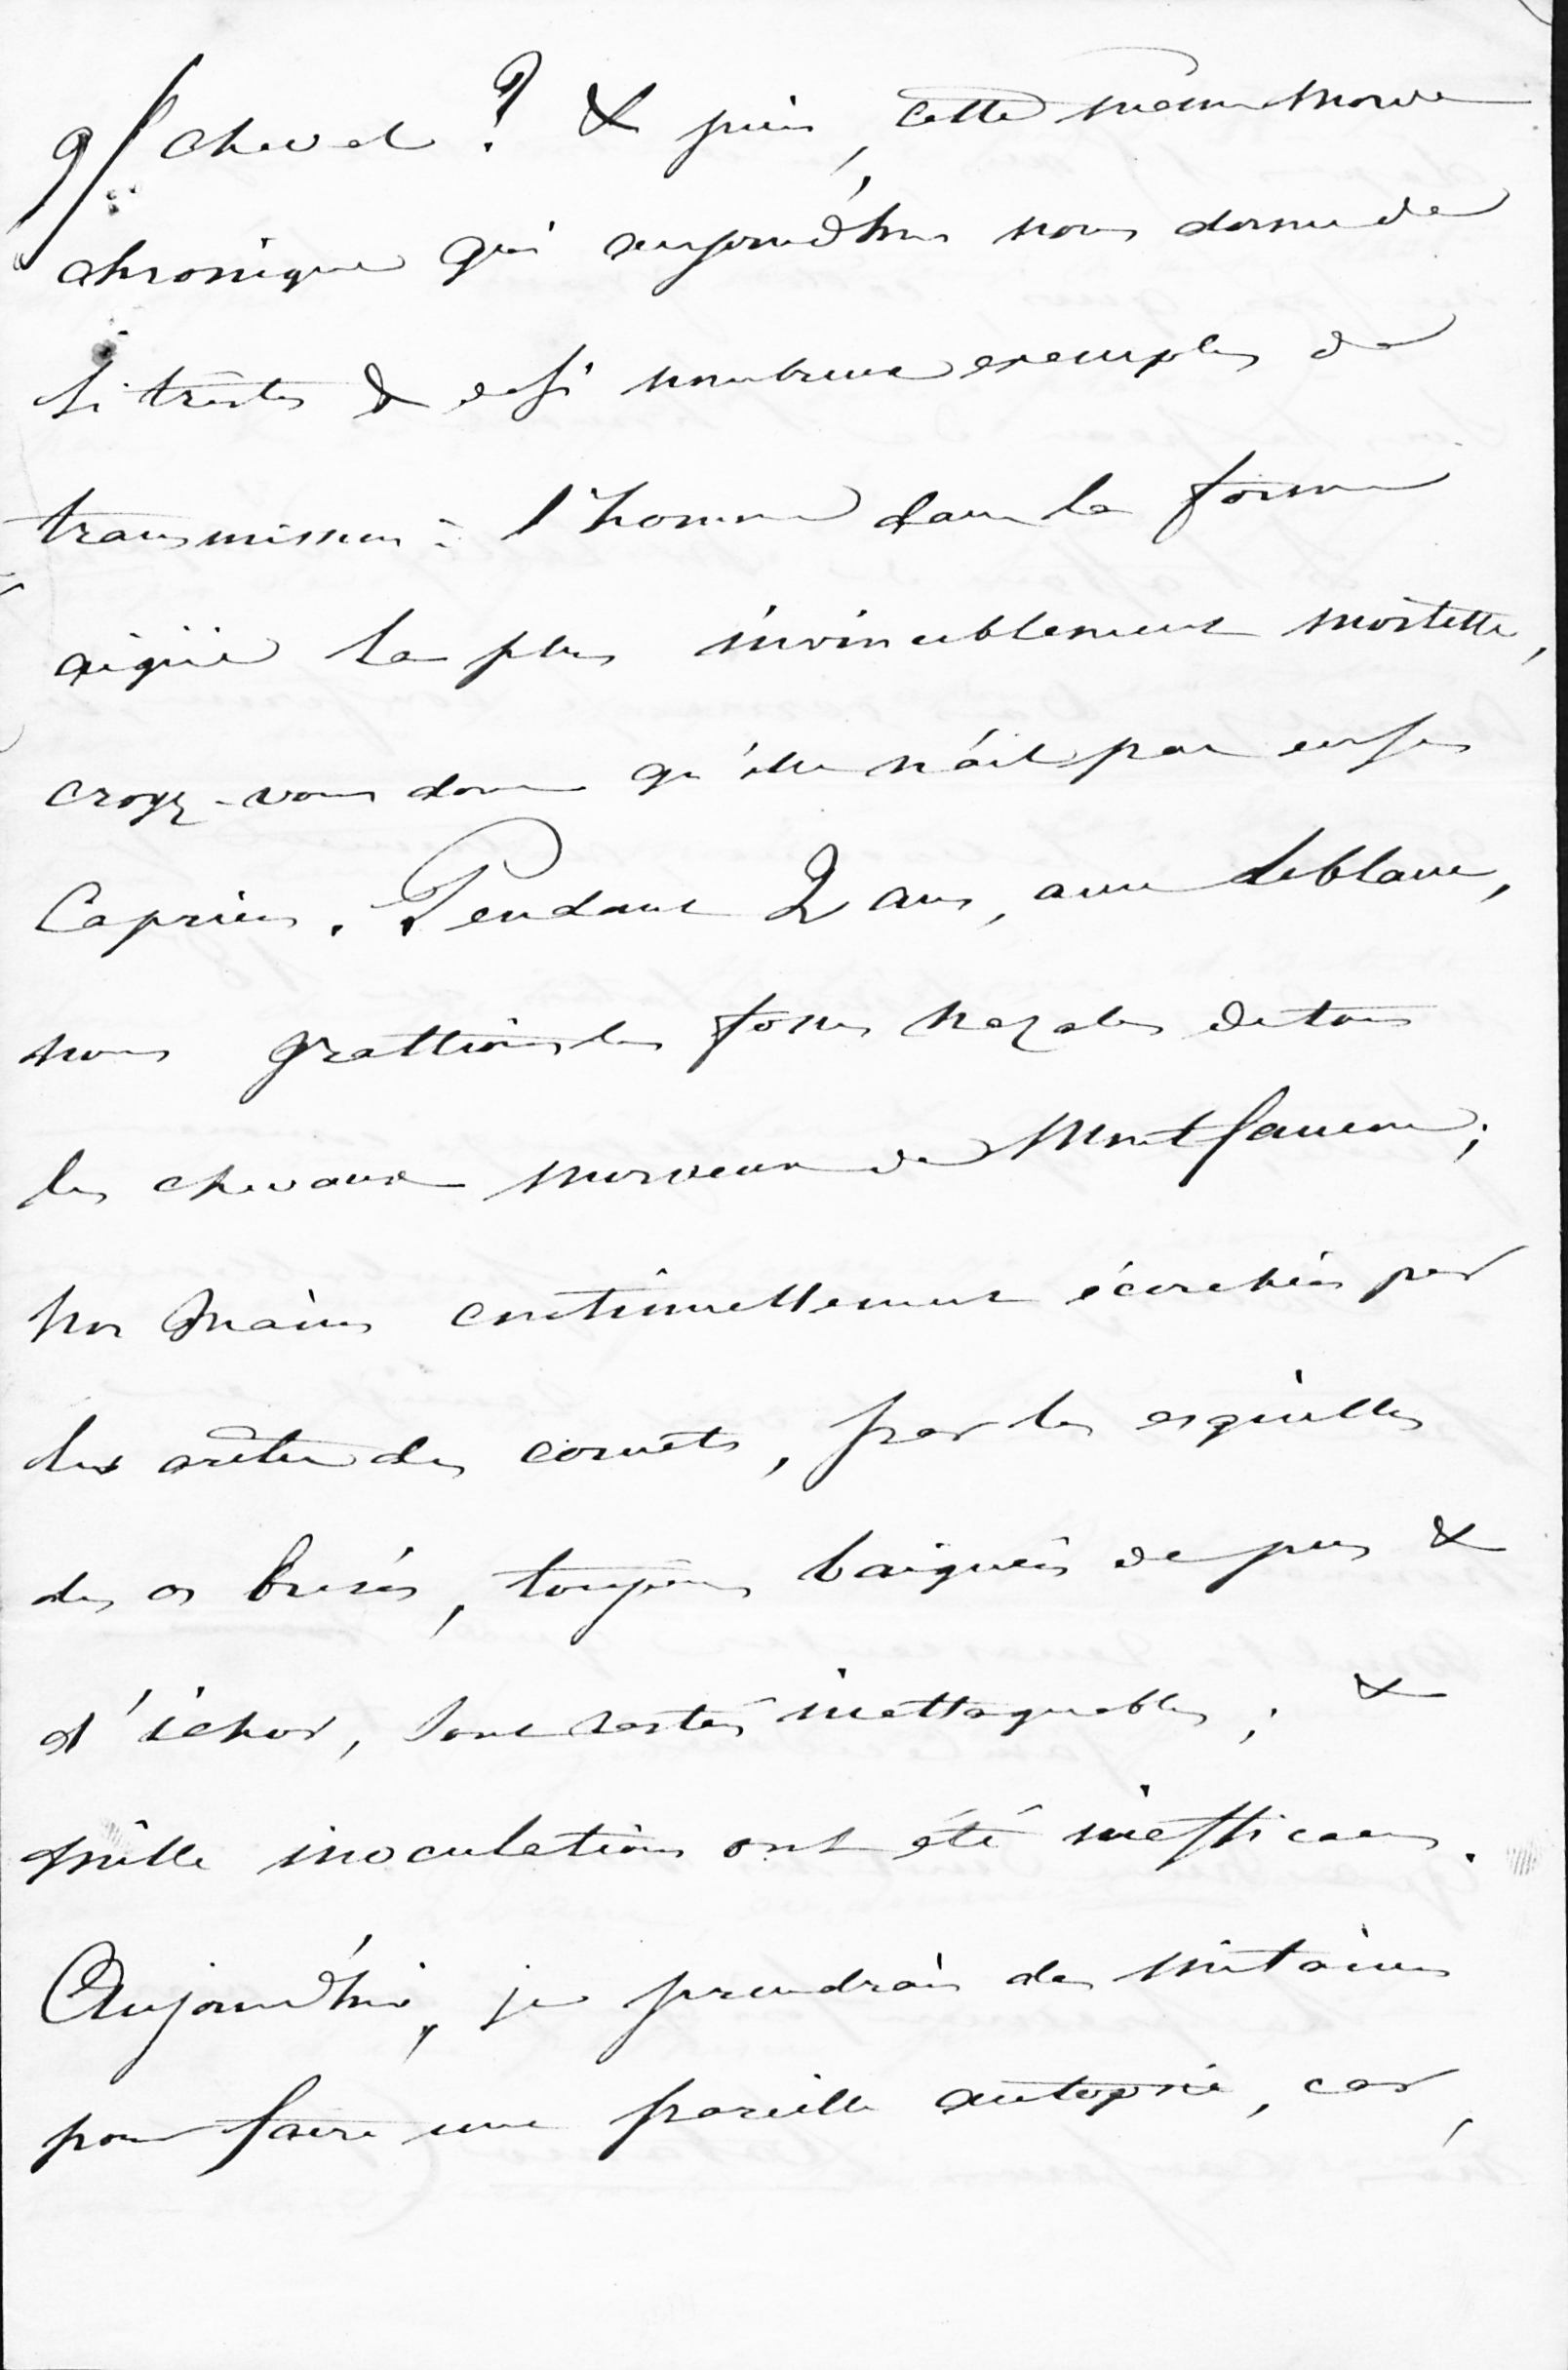 9/ cheval ? & puis, cette même morve
chronique qui aujourd'hui nous donne de
si tristes & de si nombreux exemples de
transmission à l'homme dans la forme
aigüe la plus invinciblement mortelle,
croyez-vous donc qu'elle n'ait pas eu ses
caprices. Pendant 2 ans, avec Leblanc,
nous grattions les fosses nazales de tous
les chevaux morveux de Montfaucon ;
nos mains continuellement écorchées par
les arêtes des cornets, par les esquilles
des os brisés, toujours baignées de pus &
d'ichor, sont restées inattaquables ; &
mille inoculations ont été inefficaces.
Aujourd'hui, je prendrais des mitaines
pour faire une pareille autopsie, car,